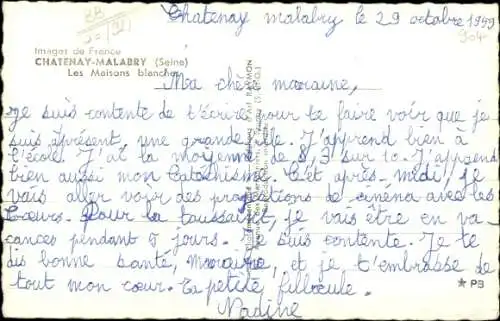 Chatenay malabry le 29 octobre 1959
904
Images de France
CHATENAY-MALABRY (Seine)
Les Maisons blanches
Ma chèr maraine,
je suis contente de t'écrire pour te faire voir que je
suis apresent, une grande fille. J'apprend bien à
l'école. J'ai la moyenne de 8,3 sur 10. J'apprend
bien aussi mon Catéchisme. Cet après-midi, je
vais aller voir des projections de cinéma avec les
Cœurs. Pour la toussaint, je vais être en va
cances pendant 5 jours. Je suis contente. Je te
dis bonne santé, maraine, et je t'embrasse de
tout mon cœur. Ta petite filleule.
Nadine
★ PB